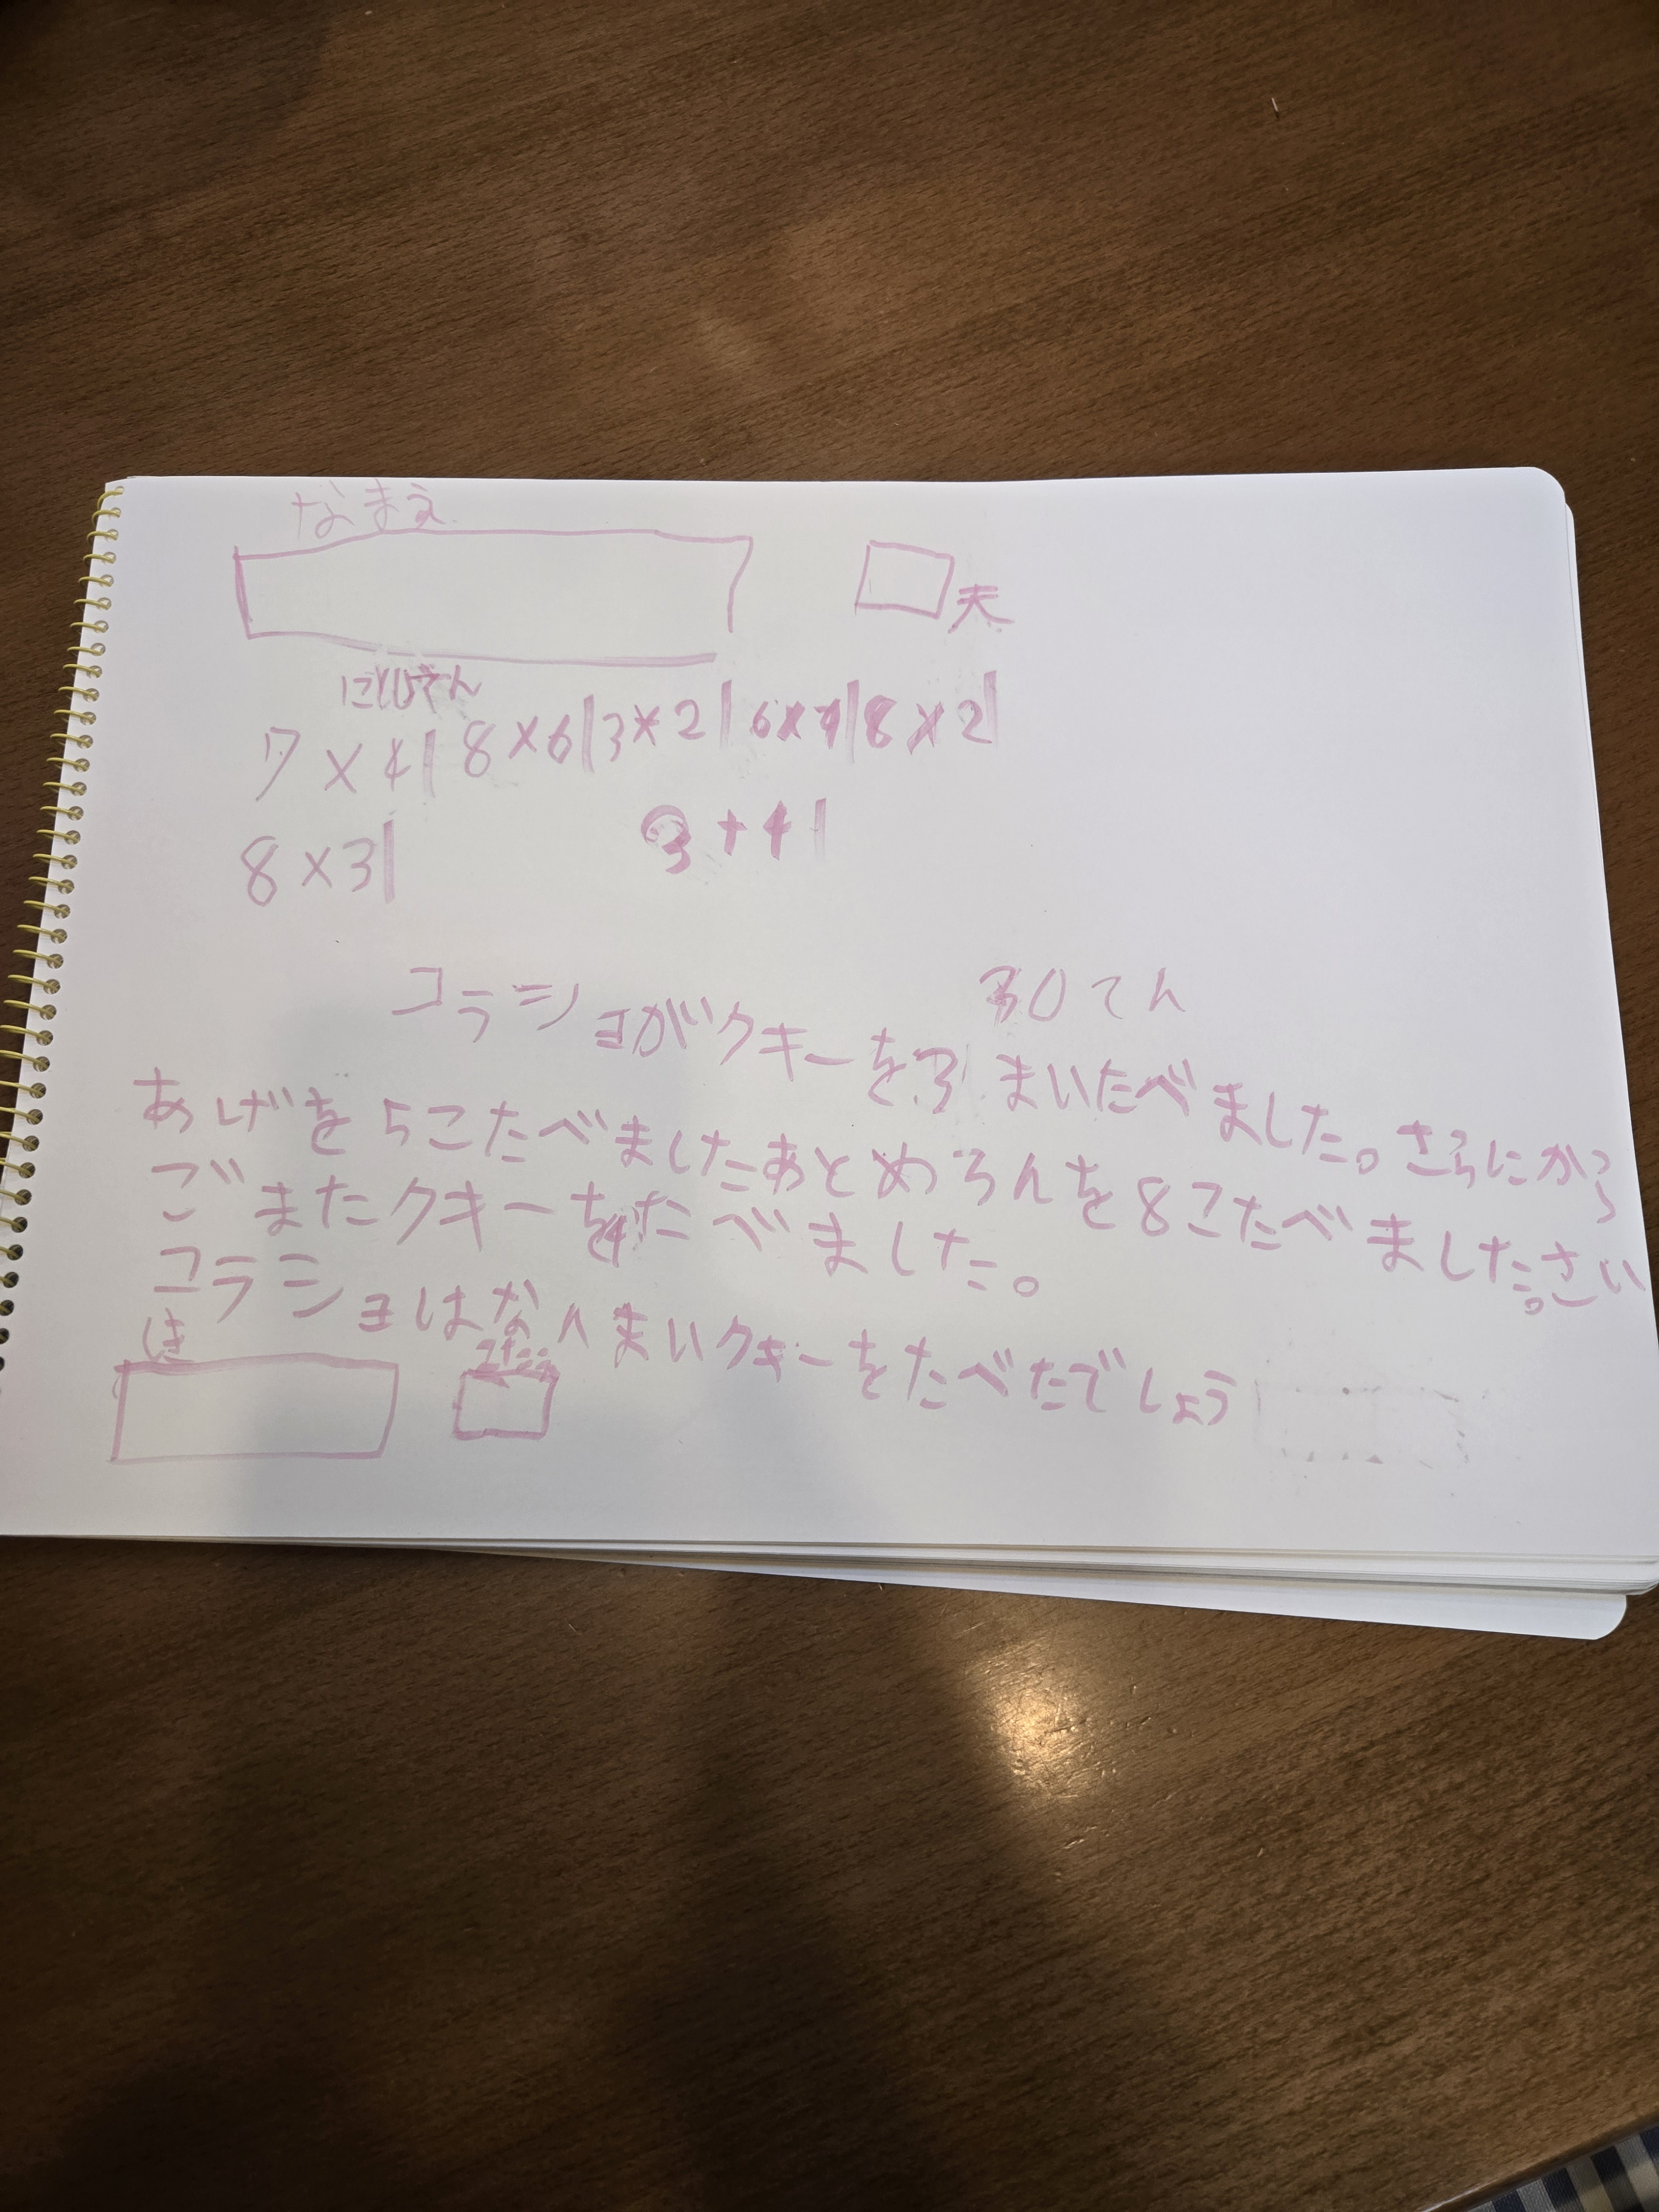 なまえ
夫
7×4| 8×6|3×2|6×4|8×2|
8×3| 3+4|
30てん
コラショがクキーを3まいたべました。さらにから
あげを5こたべましたあとめろんを8こたべました。さい
ごまたクキーを4たべました。
コラショはなんまいクキーをたべたでしょう
しき